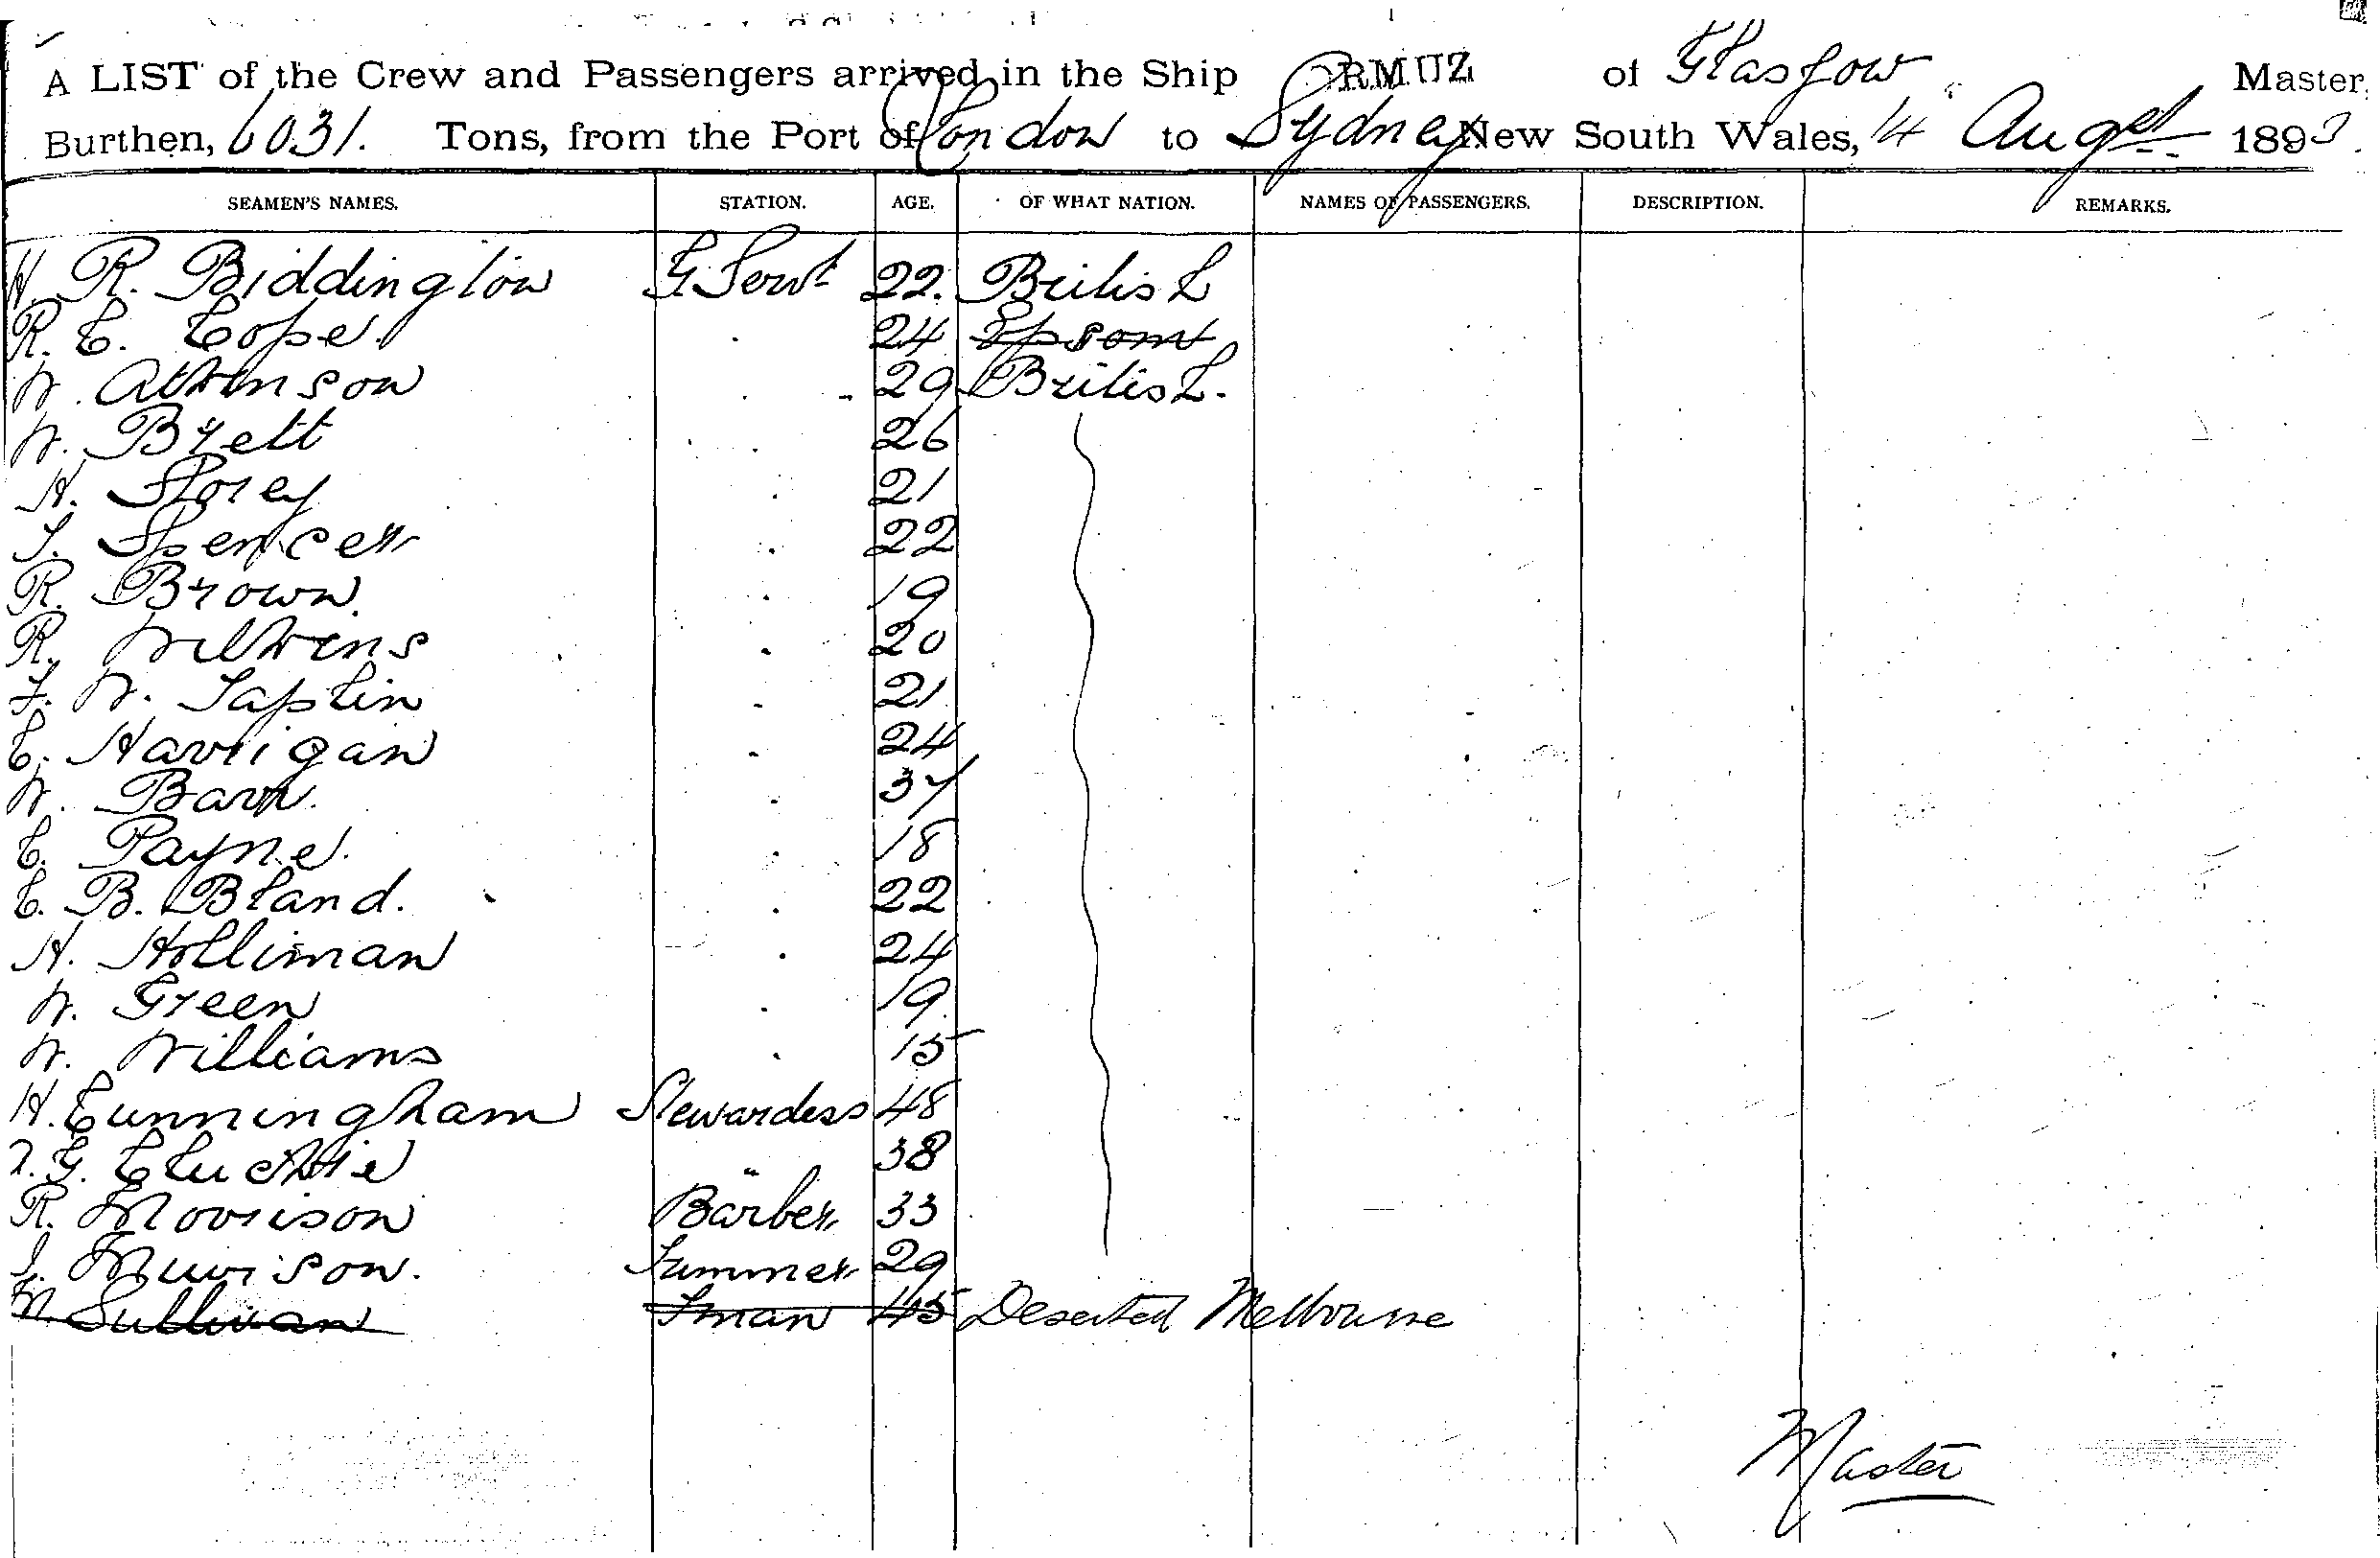 A LIST of the Crew and Passengers arrived in the Ship ORMUZ of Glasgow Master,
Burthen, 6031. Tons, from the Port of London to Sydney New South Wales, 14 Augst 1893.
SEAMEN'S NAMES. STATION. AGE. OF WHAT NATION. NAMES OF PASSENGERS. DESCRIPTION. REMARKS.
H. R. Biddington G. Servt 22. British
R. C. Cope. 24 Epsom
W. Atkinson 29 British.
W. Brett 26
H. Storey 21
J. Spencer 22
R. Brown. 19
R. Wilkins 20
F. W. Taplin 21
C. Harrigan 24
W. Barr. 37
C. Payne. 18
C. B. Bland. 22
H. Holliman 24
W. Green 19.
W. Williams 15
H. Cunningham Stewardess 48
G. Cluckie " 38
R. Morrison Barber 33
J. Muirison. 29
M. Sullivan Fman 45 Deserted Melbourne
Master